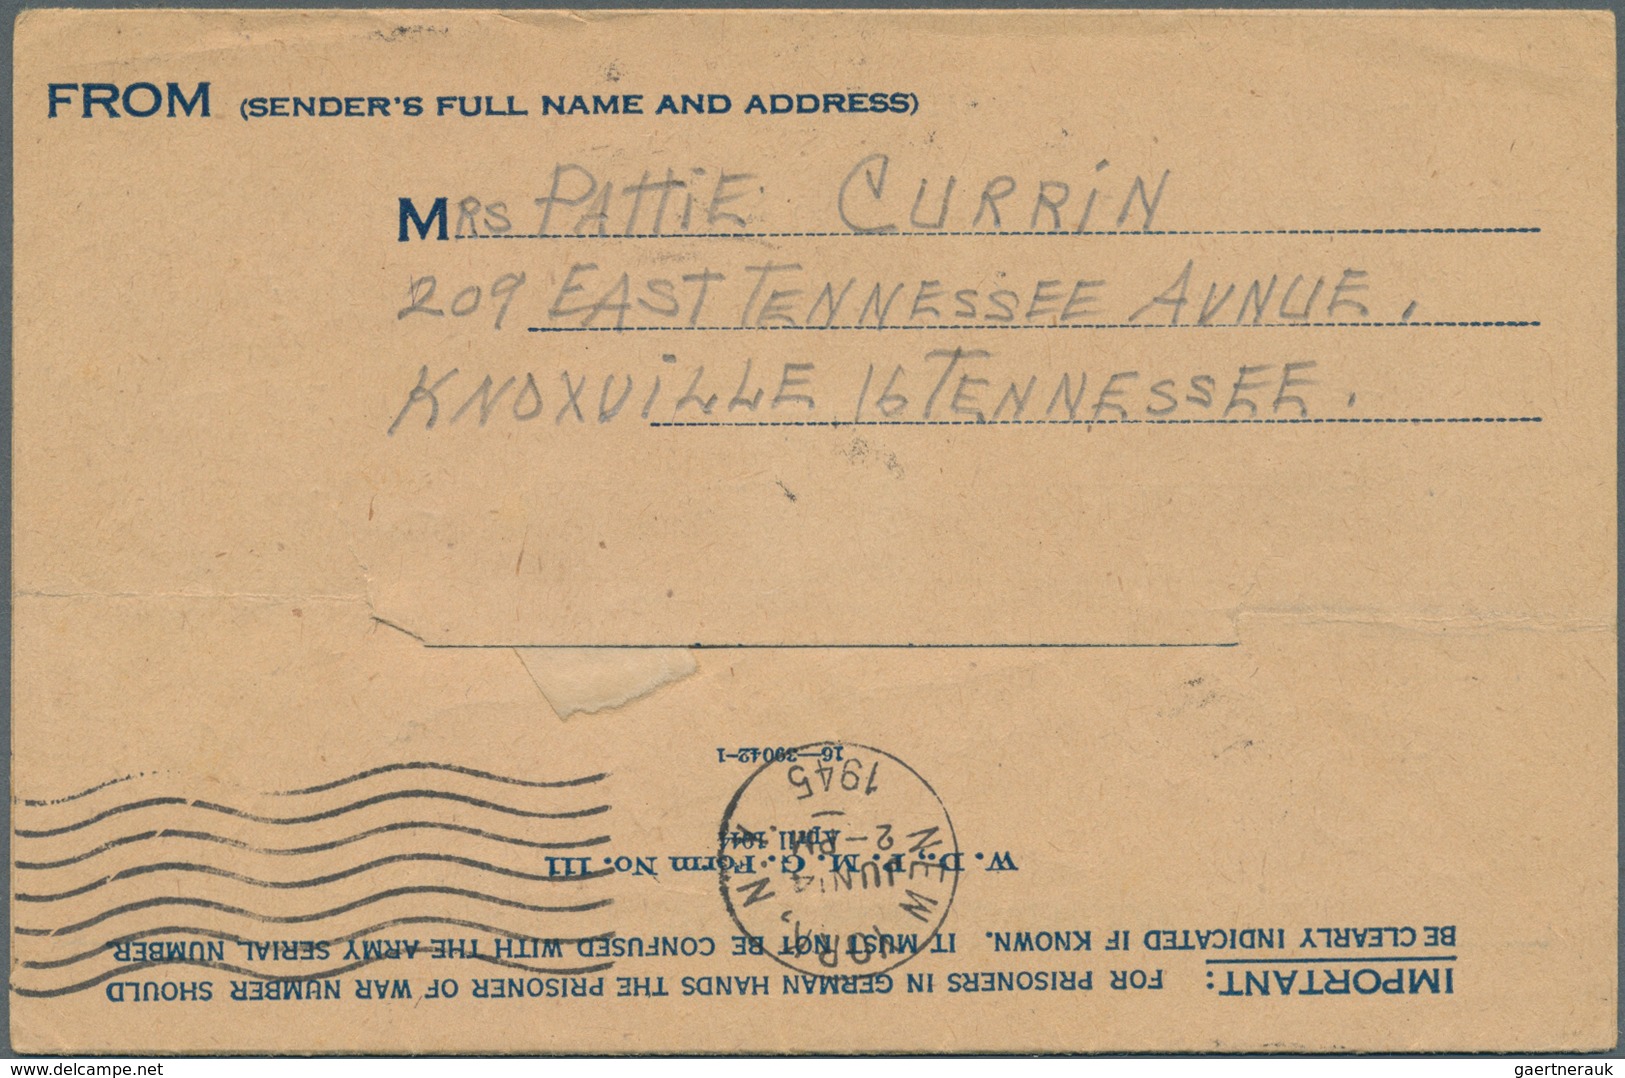 FROM (SENDER'S FULL NAME AND ADDRESS)
MRS PATTIE CURRIN
209 EAST TENNESSEE AVNUE.
KNOXVILLE 16 TENNESSEE.
16—39042-1
April 1944
W. D., P. M. G. Form No. 111
NEW YORK, N.Y.
JUN 4
2 – PM
1945
IMPORTANT: FOR PRISONERS IN GERMAN HANDS THE PRISONER OF WAR NUMBER SHOULD
BE CLEARLY INDICATED IF KNOWN. IT MUST NOT BE CONFUSED WITH THE ARMY SERIAL NUMBER.
www.delcampe.net
gaertnerauk